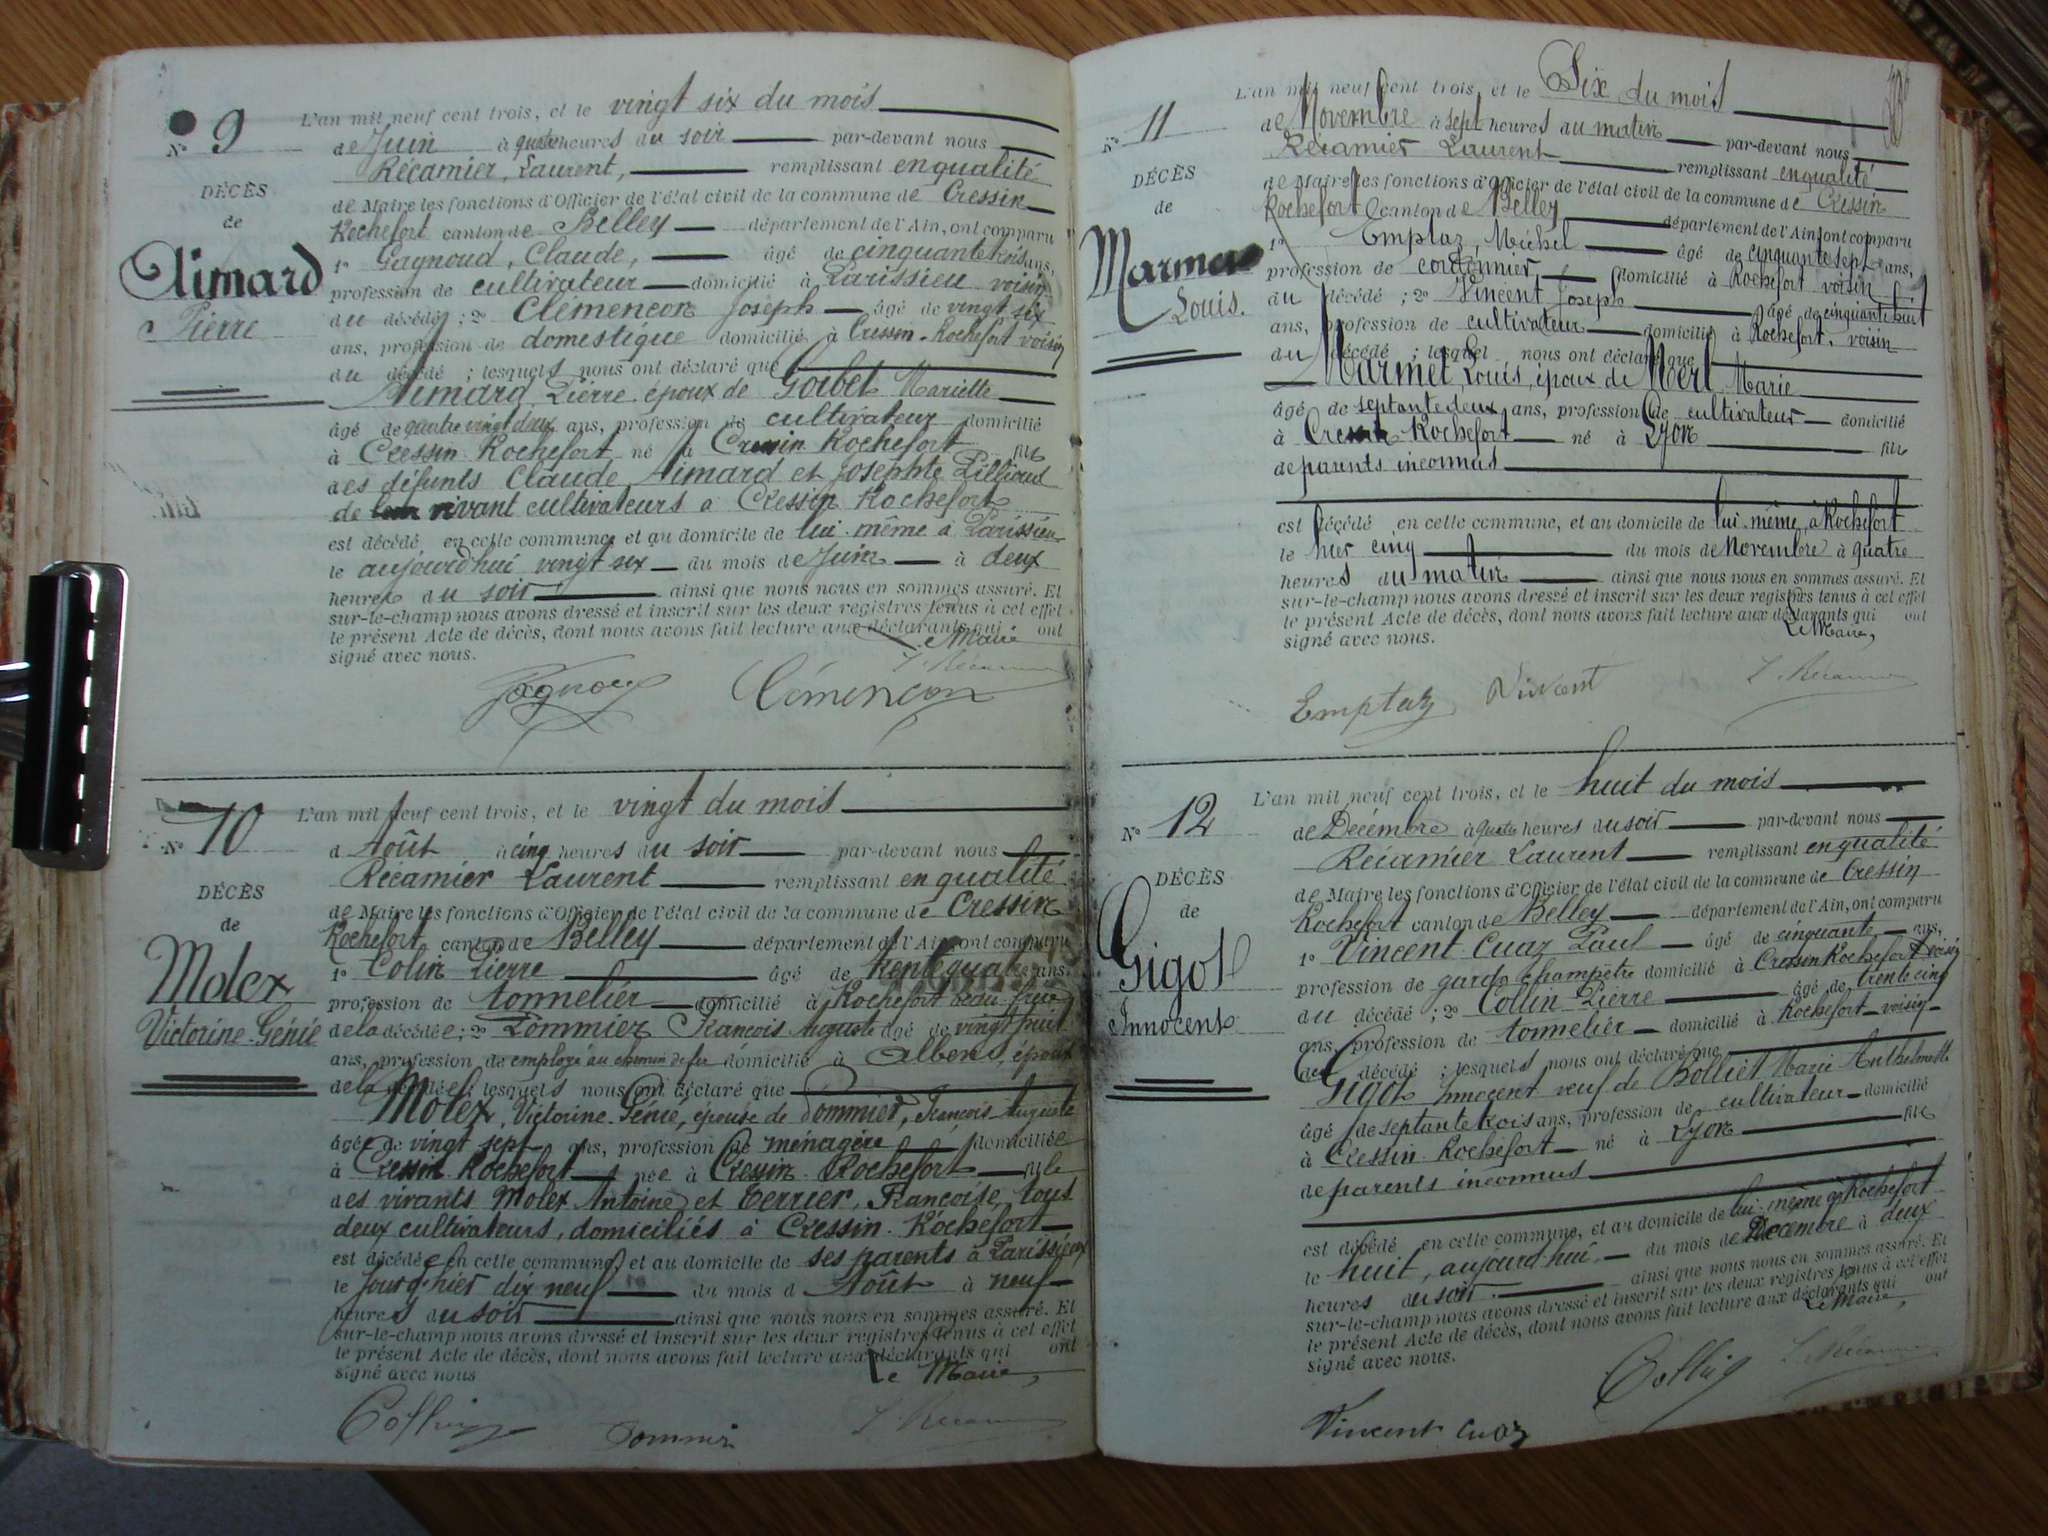 L'an mil neuf cent trois, et le vingt six du mois
N° 9
de Juin à quatre heures du soir par-devant nous
Récamier, Laurent, remplissant en qualité
DÉCÈS
de Maire les fonctions d'Officier de l'état civil de la commune de Cressin
de
Rochefort canton de Belley département de l'Ain, ont comparu
Aimard
Pierre
1° Gagnoud, Claude, âgé de cinquante trois ans,
profession de cultivateur domicilié à Parissieu voisin
du décédé ; 2° Clémençon Joseph âgé de vingt six
ans, profession de domestique domicilié à Cressin-Rochefort voisin
du décédé ; lesquels nous ont déclaré que
Aimard, Pierre époux de Goibet Mariette
âgé de quatre vingt deux ans, profession de cultivateur domicilié
à Cressin-Rochefort né à Cressin-Rochefort fils
des défunts Claude Aimard et Josephte Pillioud
de vivant cultivateurs à Cressin Rochefort
est décédé en cette commune, et au domicile de lui-même à Parissieu
le aujourd'hui vingt six du mois de Juin à deux
heures du soir ainsi que nous nous en sommes assuré. Et
sur-le-champ nous avons dressé et inscrit sur les deux registres tenus à cet effet
le présent Acte de décès, dont nous avons fait lecture aux déclarants qui ont
signé avec nous.
Le Maire
Gagnoud Clémençon L. Récamier
L'an mil neuf cent trois, et le vingt du mois
N° 10
d'Août à cinq heures du soir par-devant nous
Récamier Laurent remplissant en qualité
DÉCÈS
de Maire les fonctions d'Officier de l'état civil de la commune de Cressin
de
Rochefort canton de Belley département de l'Ain, ont comparu
Molex
Victorine-Génie
1° Colin Pierre âgé de trente quatre ans,
profession de tonnelier domicilié à Rochefort beau frère
de la décédée ; 2° Pommier François Auguste âgé de vingt huit
ans, profession de employé au chemin de fer domicilié à Albens, époux
de la décédée ; lesquels nous ont déclaré que
Molex, Victorine-Génie, épouse de Pommier, François Auguste
âgée de vingt sept ans, profession de ménagère domiciliée
à Cressin-Rochefort née à Cressin-Rochefort fille
des vivants Molex Antoine et Terrier, Françoise, tous
deux cultivateurs, domiciliés à Cressin-Rochefort
est décédée en cette commune, et au domicile de ses parents à Parissieu
le jour d'hier dix neuf du mois d'Août à neuf
heures du soir ainsi que nous nous en sommes assuré. Et
sur-le-champ nous avons dressé et inscrit sur les deux registres tenus à cet effet
le présent Acte de décès, dont nous avons fait lecture aux déclarants qui ont
signé avec nous
Le Maire,
Collin Pommier L. Récamier
L'an mil neuf cent trois, et le Six du mois
N° 11
de Novembre à sept heures du matin par-devant nous
Récamier Laurent remplissant en qualité
DÉCÈS
de Maire les fonctions d'Officier de l'état civil de la commune de Cressin
de
Rochefort canton de Belley département de l'Ain, ont comparu
Marmet
Louis.
1° Emptaz, Michel âgé de cinquante sept ans,
profession de cordonnier domicilié à Rochefort voisin
du décédé ; 2° Vincent Joseph âgé de cinquante huit
ans, profession de cultivateur domicilié à Rochefort, voisin
du décédé ; lesquels nous ont déclaré que
Marmet, Louis, époux de Merl Marie
âgé de septante deux ans, profession de cultivateur domicilié
à Cressin-Rochefort né à Lyon fils
de parents inconnus
est décédé en cette commune, et au domicile de lui-même à Rochefort
le hier cinq du mois de Novembre à quatre
heures du matin ainsi que nous nous en sommes assuré. Et
sur-le-champ nous avons dressé et inscrit sur les deux registres tenus à cet effet
le présent Acte de décès, dont nous avons fait lecture aux déclarants qui ont
signé avec nous.
Le Maire,
Emptaz Vincent L. Récamier
L'an mil neuf cent trois, et le huit du mois
N° 12
de Décembre à quatre heures du soir par-devant nous
Récamier Laurent remplissant en qualité
DÉCÈS
de Maire les fonctions d'Officier de l'état civil de la commune de Cressin
de
Rochefort canton de Belley département de l'Ain, ont comparu
Gigot
Innocent
1° Vincent Cuaz Paul âgé de cinquante ans,
profession de garde champêtre domicilié à Cressin Rochefort voisin
du décédé ; 2° Collin Pierre âgé de trente cinq
ans, profession de tonnelier domicilié à Rochefort voisin
du décédé ; lesquels nous ont déclaré que
Gigot Innocent veuf de Bolliet Marie Anthelmette
âgé de septante trois ans, profession de cultivateur domicilié
à Cressin-Rochefort né à Lyon fils
de parents inconnus
est décédé en cette commune, et au domicile de lui-même à Rochefort
le huit, aujourd'hui, du mois de Décembre à deux
heures du soir. ainsi que nous nous en sommes assuré. Et
sur-le-champ nous avons dressé et inscrit sur les deux registres tenus à cet effet
le présent Acte de décès, dont nous avons fait lecture aux déclarants qui ont
signé avec nous.
Le Maire,
Vincent Cuaz Collin L. Récamier